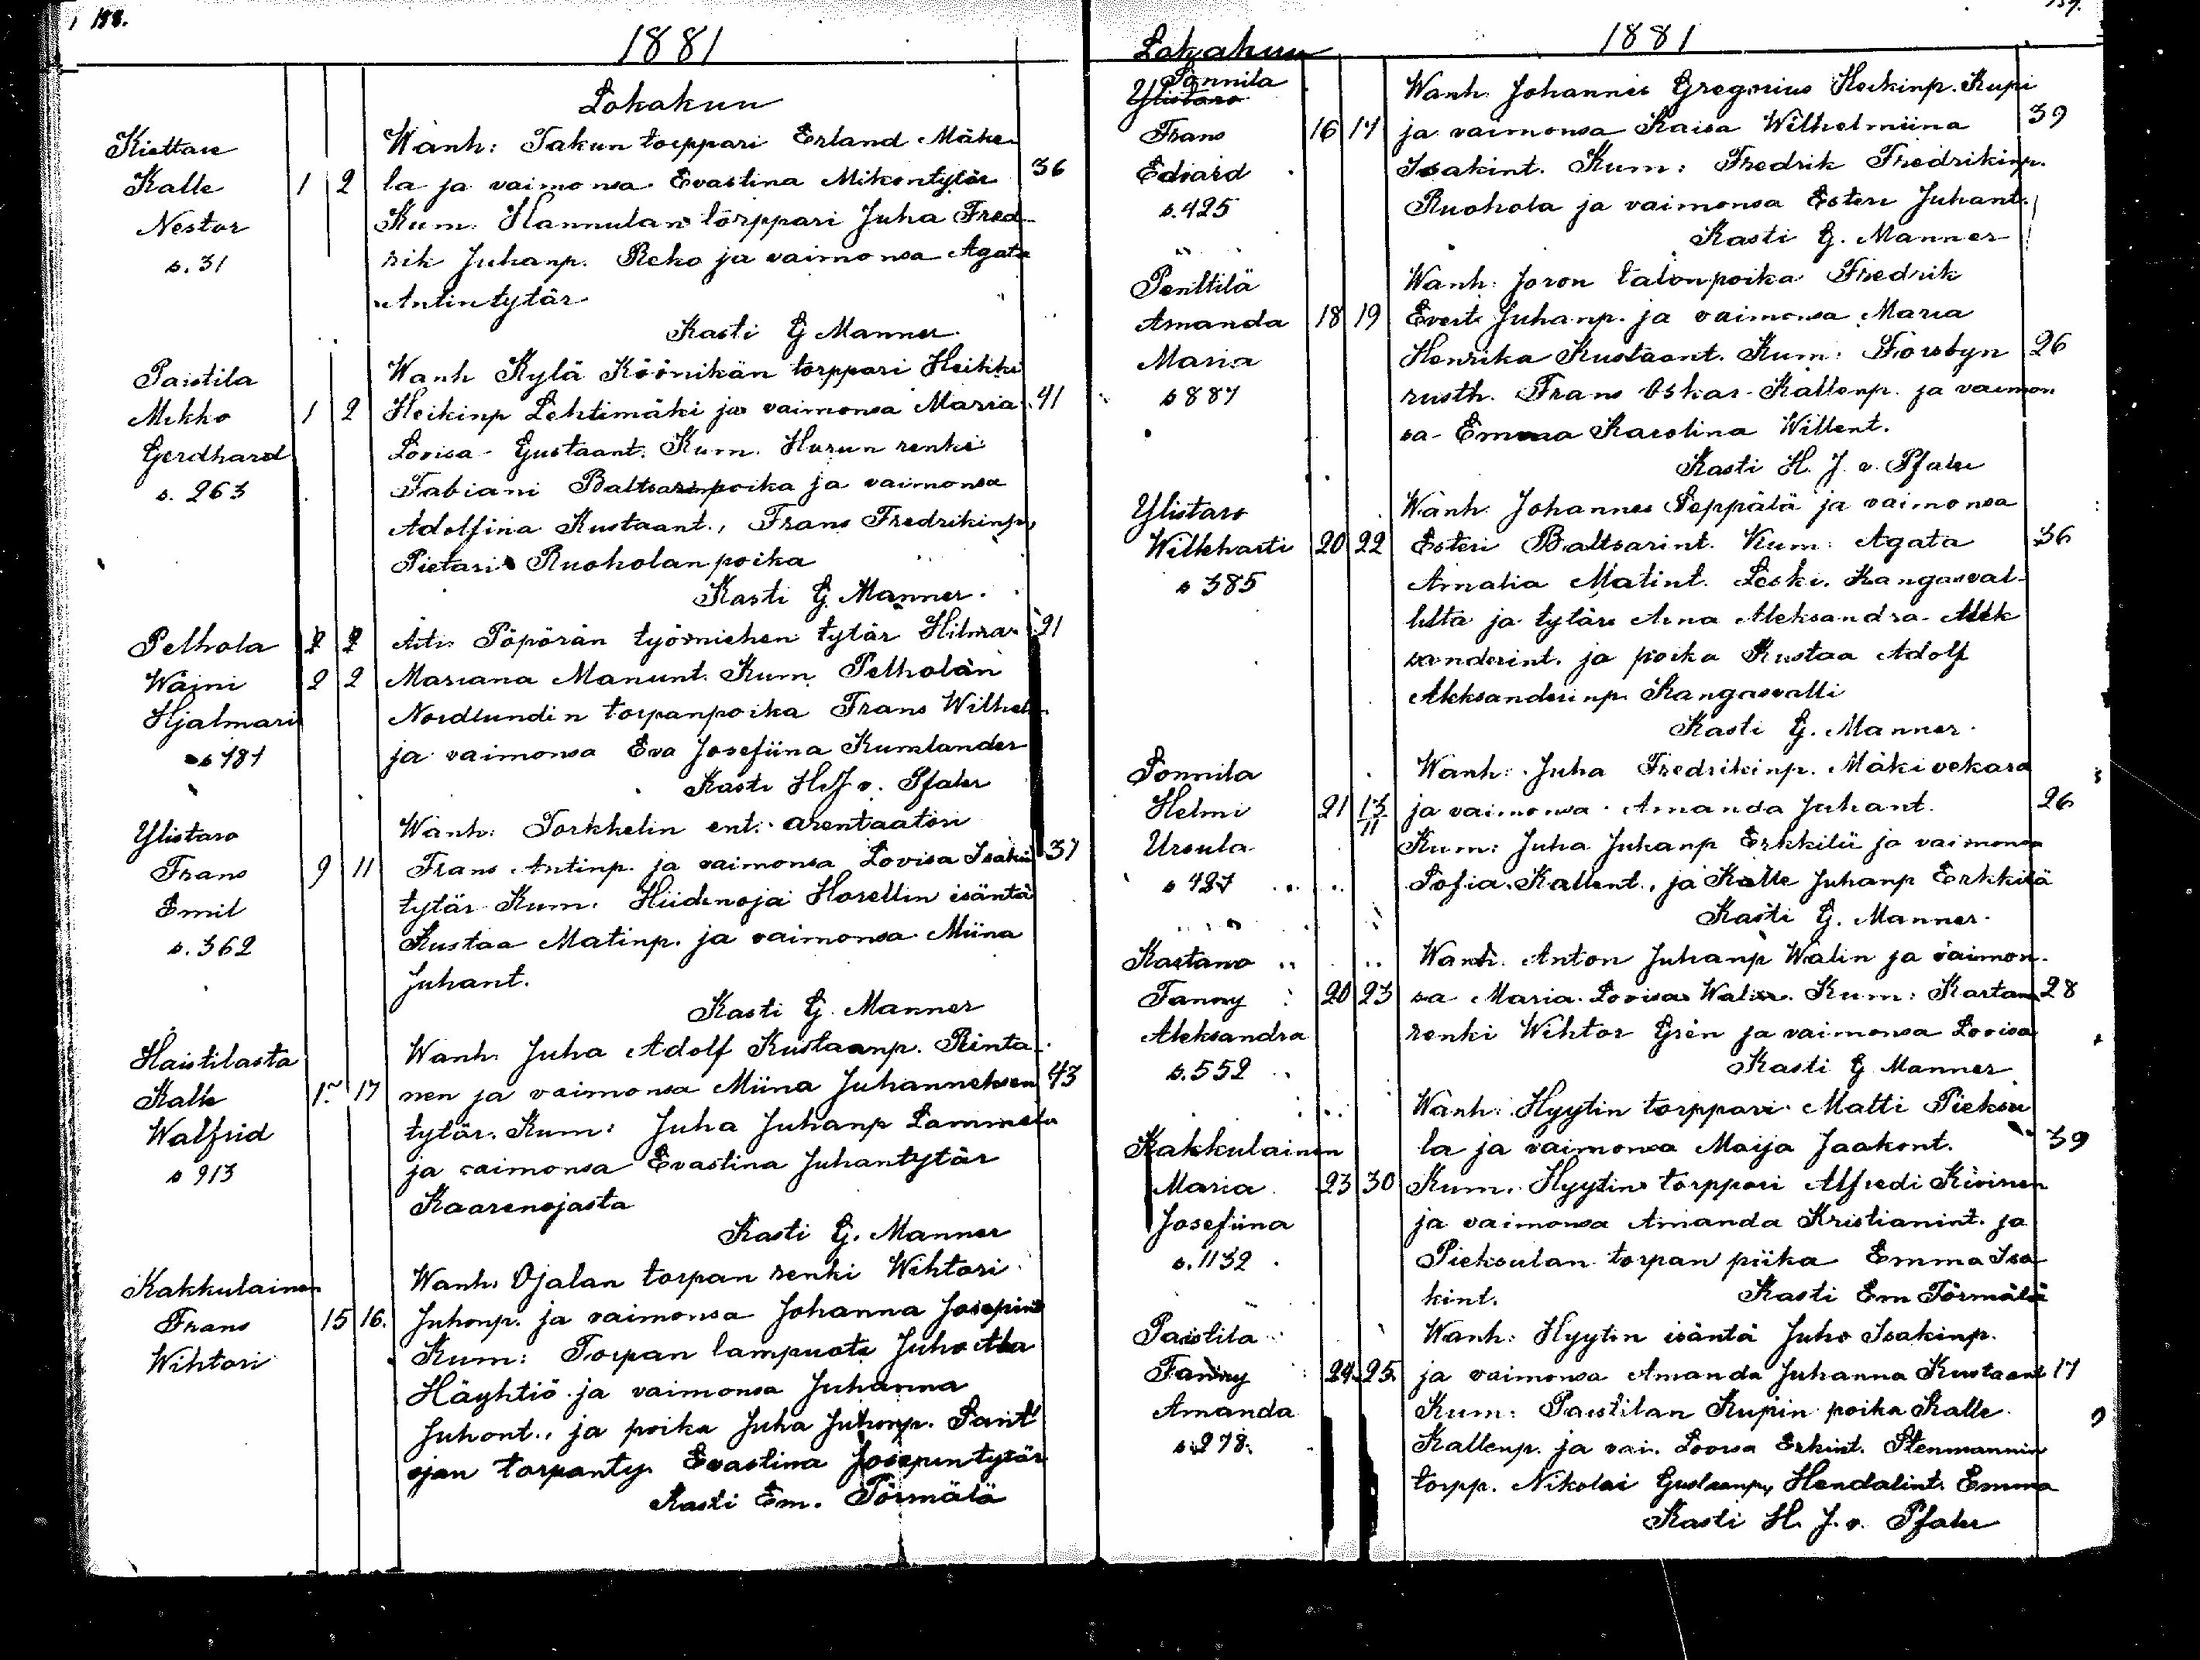 188.
1881
Lokakuu
Kiettare Wanh: Takun torppari Erland Mäke-
Kalle 1 2 la ja vaimonsa Evastina Mikontytär 36
Nestor Kum. Hannulan torppari Juha Fred-
s. 31 rik Juhanp. Reko ja vaimonsa Agata
Antintytär
Kasti G Manner
Paistila Wanh Kylä Köönikän torppari Heikki
Mikko 1 2 Heikinp Lehtimäki ja vaimonsa Maria 41
Gerdhard Lovisa Gustaant. Kum. Hurun renki
s. 263 Fabiani Baltsarinpoika ja vaimonsa
Adolfina Kustaant., Frans Fredrikinp,
Pietari Ruoholan poika
Kasti G. Manner.
Pelhola 2 2 Äiti. Pöpörän työmiehen tytär Hilma 21
Wäini 2 2 Mariana Manunt. Kum. Pelholan
Hjalmari Nordlundin torpanpoika Frans Wilhel
s 787 ja vaimonsa Eva Josefiina Kumlander
Kasti H. J v. Pfaler
Ylistaro Wanh: Torkkelin ent. arentaatori
Frans 9 11 Frans Antinp. ja vaimonsa Lovisa Isakin 37
Emil tytär Kum. Hiidenoja Horellin isäntä
s. 362 Kustaa Matinp. ja vaimonsa Miina
Juhant.
Kasti G. Manner
Haistilasta Wanh. Juha Adolf Kustaanp. Rinta-
Kalle 17 nen ja vaimonsa Miina Juhanneksen 43
Walfrid tytär. Kum: Juha Juhanp Lammela
s 913 ja vaimonsa Evastina Juhantytär
Kaarenojasta
Kasti G. Manner
Kakkulainen Wanh. Ojalan torpan renki Wihtori
Frans 15 16. Juhonp. ja vaimonsa Johanna Josepin
Wihtori Kum: Torpan lampuoti Juho
Häyhtiö ja vaimonsa Juhanna
Juhont., ja poika Juha Juhonp. Sant
ojan torpanty. Evastina Josepintytär
Kasti Em. Törmälä
Lokakuu 1881
Sonnila
Ylistaro Wanh. Johannes Gregorius Heikinp. Kupi
Frans 16 17 ja vaimonsa Kaisa Wilhelmiina 39
Edvard Isakint. Kum: Fredrik Fredrikinp.
s. 425 Ruohola ja vaimonsa Esteri Juhant.
Kasti G. Manner
Penttilä Wanh. Joron talonpoika Fredrik
Amanda 18 19 Evert Juhanp. ja vaimonsa Maria
Maria Henrika Kustaant. Kum: Forsbyn 26
s 887 rusth. Frans Oskar Kallenp. ja vaimon
sa Emma Karolina Willent.
Kasti H. J. v. Pfaler
Ylistaro Wanh. Johannes Seppälä ja vaimonsa
Wilkharti 20 22 Esteri Baltsarint. Kum: Agata 36
s 385 Amalia Matint. Leski. Kangasval-
lilta ja tytär Anna Aleksandra Alek
sanderint. ja poika Kustaa Adolf
Aleksanderinp. Kangasvalli
Kasti G. Manner.
Sonnila Wanh: Juha Fredrikinp. Mäkivekara
Helmi 21 13/11 ja vaimonsa Amanda Juhant. 26
Ursula Kum: Juha Juhanp Erkkilä ja vaimonsa
s 427 Sofia Kallent., ja Kalle Juhanp Erkkilä
Kasti G. Manner.
Kartano Wanh. Anton Juhanp Walin ja vaimon-
Fanny 20 23 sa Maria Lovisa Walin. Kum: Kartano 28
Aleksandra renki Wihtor Grén ja vaimonsa Lovisa
s. 552 Kasti G Manner
Wanh: Hyytin torppari Matti Pieksu
Kakkulainen la ja vaimonsa Maija Jaakont. 39
Maria 23 30 Kum. Hyytin torppari Alfredi Kivinen
Josefiina ja vaimonsa Amanda Kristianint. ja
s. 1132 Pieksulan torpan piika Emma Isa
kint. Kasti Em Törmälä
Paistila Wanh: Hyytin isäntä Juho Isakinp.
Fanny 24 25 ja vaimonsa Amanda Juhanna Kustaant 17
Amanda Kum: Paistilan Kupin poika Kalle
s. 278. Kallenp. ja vai. Lovisa Erkint. Stenmannin
torpp. Nikolai Gustaanp, Hendalint. Emma
Kasti H. J. v. Pfaler